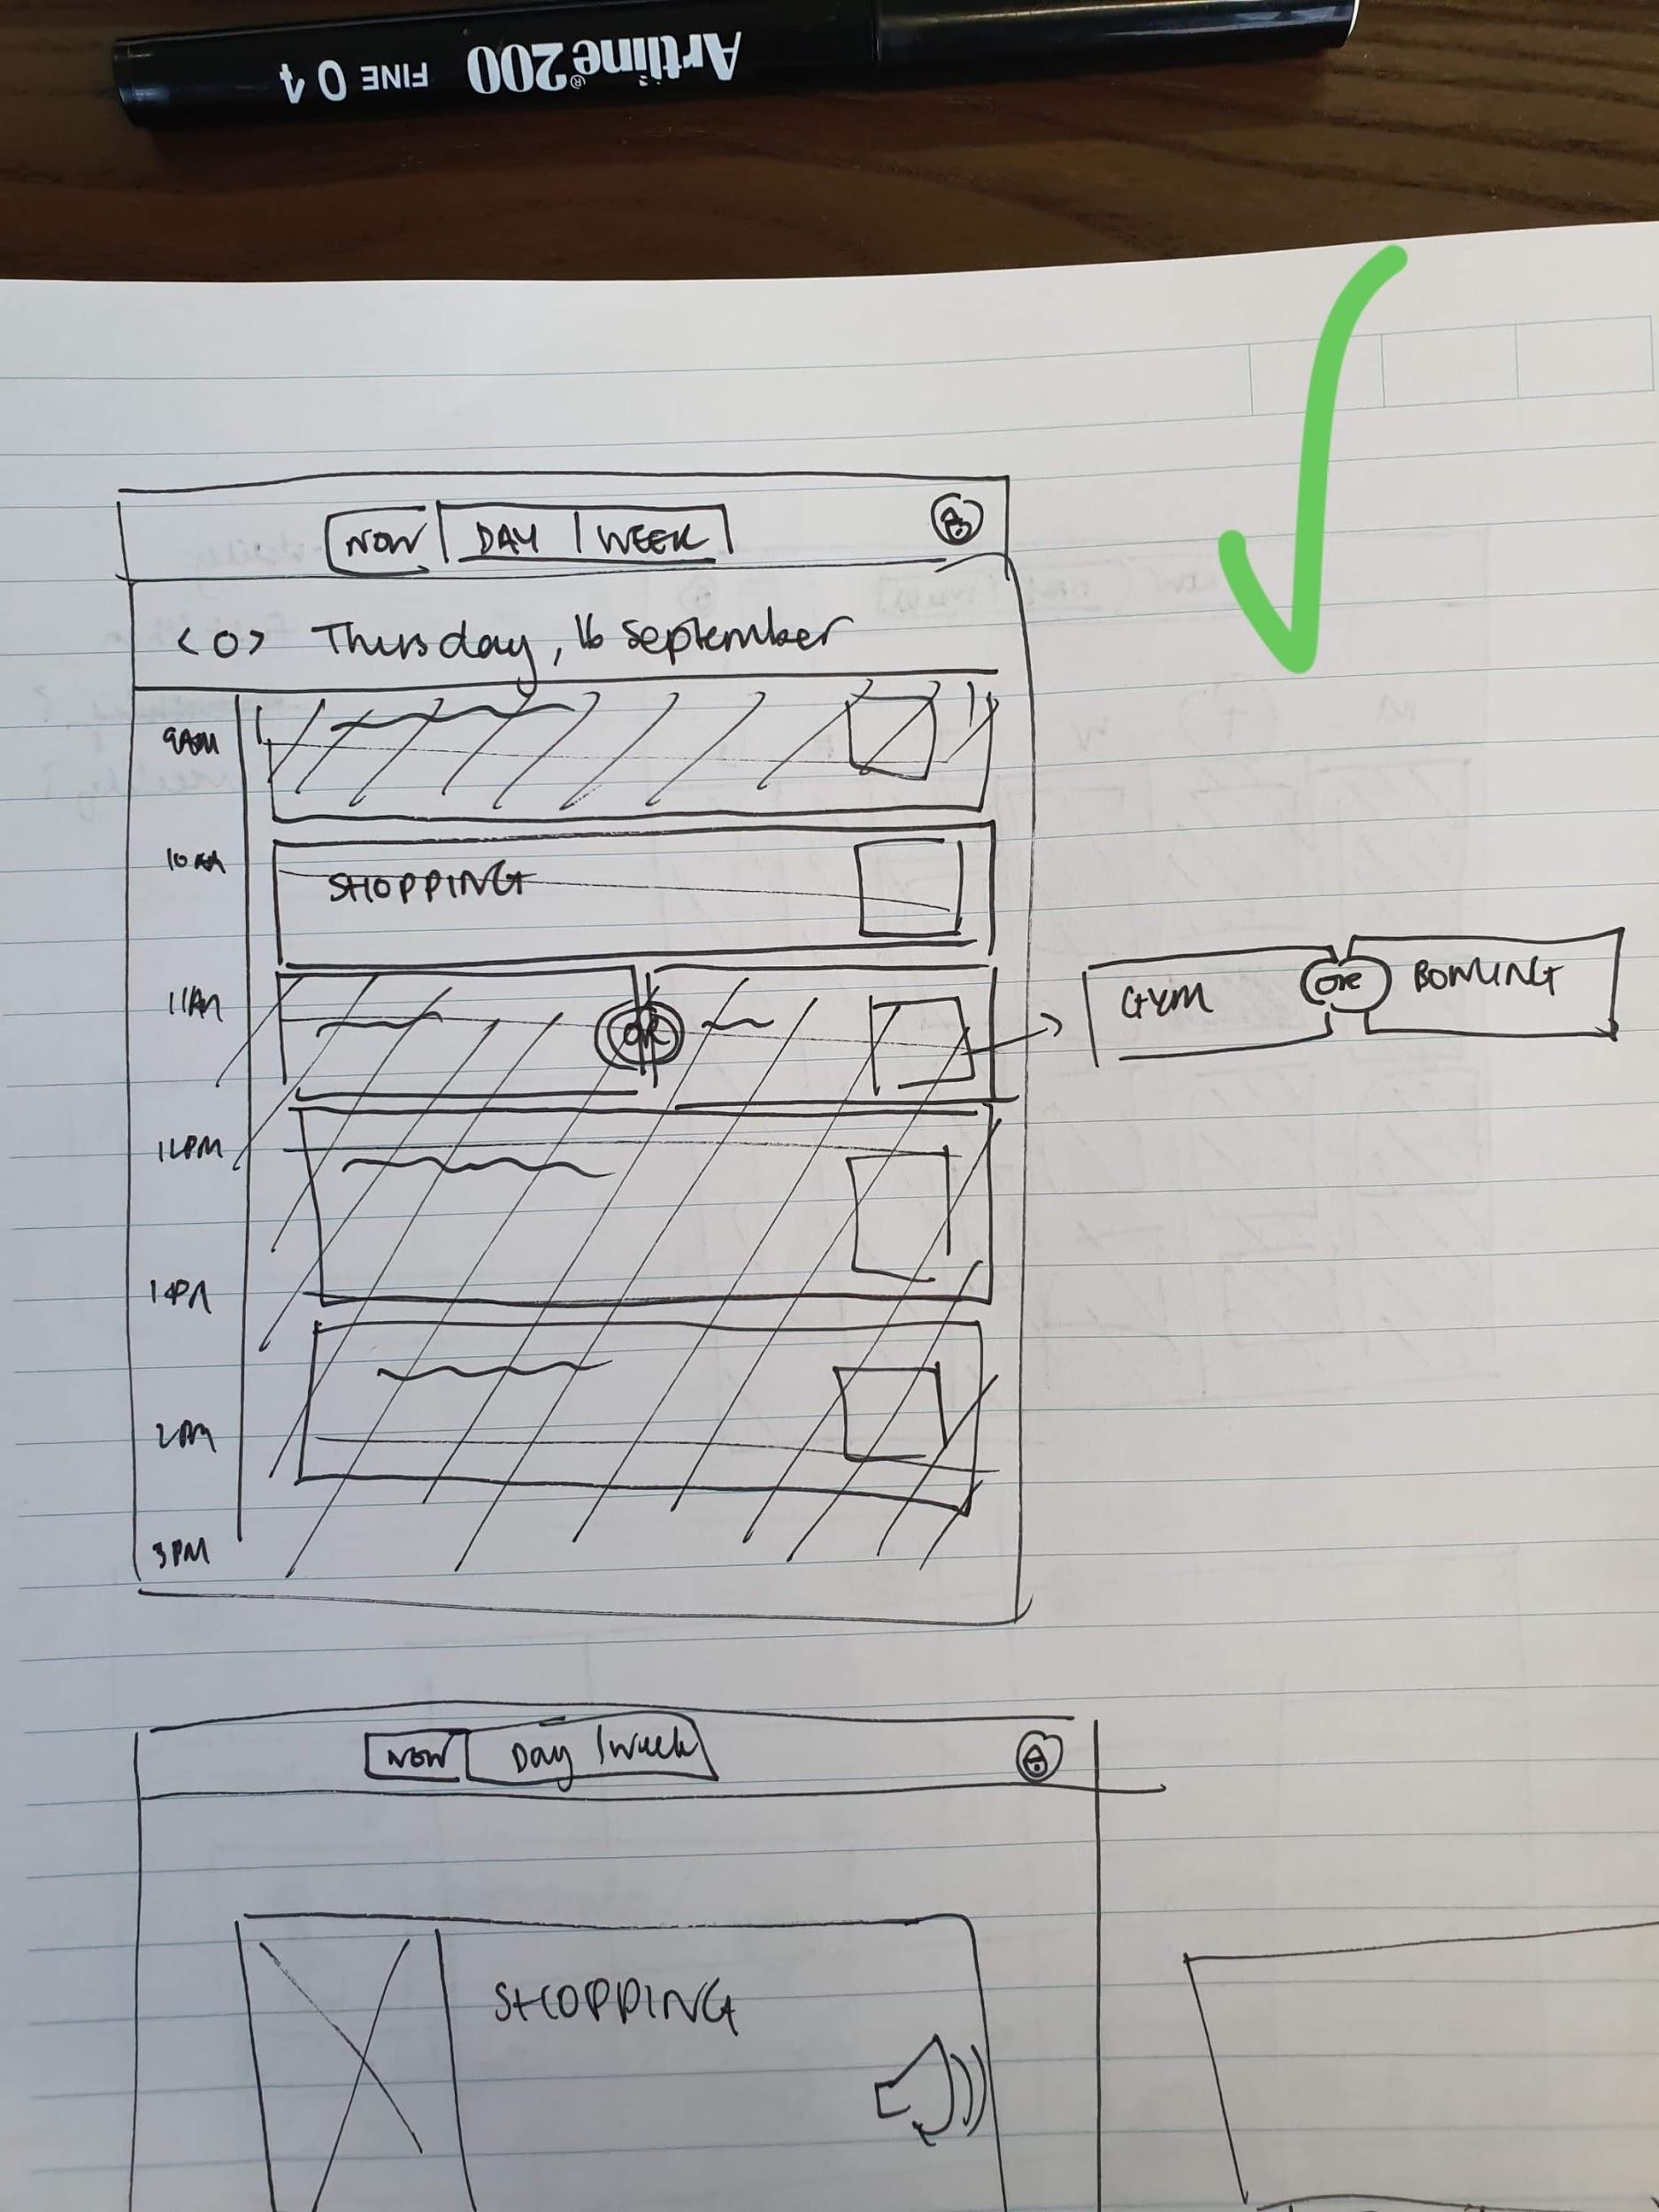 Artline® 200 FINE 0.4
NOW DAY WEEK
<O> Thursday, 16 September
9AM
10AM
SHOPPING
11AM
OR
GYM OR BOWLING
12PM
1PM
2PM
3PM
NOW Day Week
SHOPPING